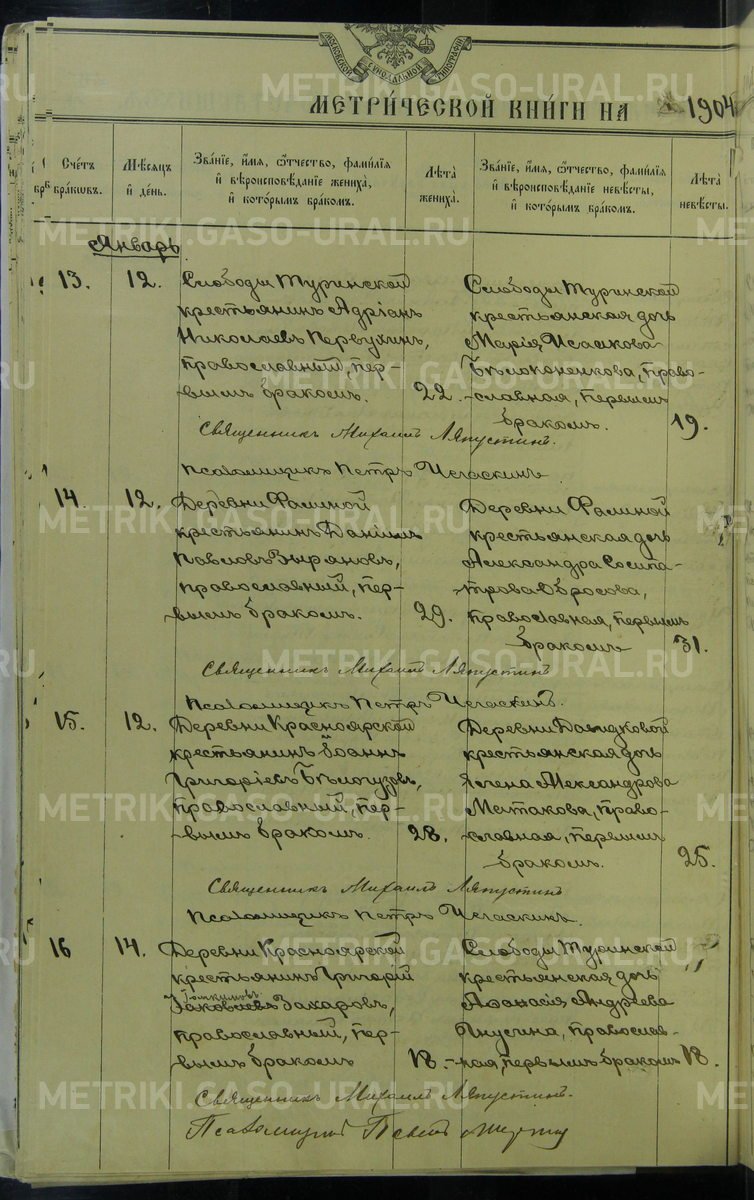 МОСКОВСКОЙ СѴНОДАЛЬНОЙ ТИПОГРАФІИ
METRIKI.GASO-URAL.RU
МЕТРИ́ЧЕСКОЙ КНИ́ГИ НА 1904
Сче́тъ бра́ковъ.
Мѣ́сяцъ и҆ де́нь.
Зва́нїе, и҆́мя, ѻ҆́тчество, фами́лїя и҆ вѣроисповѣ́данїе жениха̀, и҆ кото́рымъ бра́комъ.
Лѣ́та жениха̀.
Зва́нїе, и҆́мя, ѻ҆́тчество, фами́лїя и҆ вѣроисповѣ́данїе невѣ́сты, и҆ кото́рымъ бра́комъ.
Лѣ́та невѣ́сты.
Январь
13. 12.
Слободы Туринской
крестьянинъ Адріанъ
Николаевъ Первухинъ,
православный, пер-
вымъ бракомъ. 22.
Слободы Туринской
крестьянская дочь
Марія Исаакова
Бѣлоконенкова, право-
славная, первымъ
бракомъ. 19.
Священникъ Михаилъ Ляпустинъ.
Псаломщикъ Петръ
14. 12.
Деревни Фалиной
крестьянинъ Даніилъ
Павловъ Зыряновъ,
православный, пер-
вымъ бракомъ. 29.
Деревни Фалиной
крестьянская дочь
Александра Сосипа-
трова Абросова,
православная, первымъ
бракомъ 31.
Священникъ Михаилъ Ляпустинъ
Псаломщикъ Петръ
15. 12.
Деревни Красноярской
крестьянинъ Іоаннъ
Григоріевъ Бѣлогузовъ,
православный, пер-
вымъ бракомъ. 28.
Деревни Давыдковой
крестьянская дочь
Елена Александрова
Матакова, право-
славная, первымъ
бракомъ. 25.
Священникъ Михаилъ Ляпустинъ
Псаломщикъ Петръ
16 14.
Деревни Красноярской
крестьянинъ Григорій
Іоакимовъ
Іаковлевъ Захаровъ,
православный, пер-
вымъ бракомъ 18.
Слободы Туринской
крестьянская дочь
Аѳанасія Андрѣева
Гнусина, православ-
ная, первымъ бракомъ 18.
Священникъ Михаилъ Ляпустинъ.
Псаломщикъ